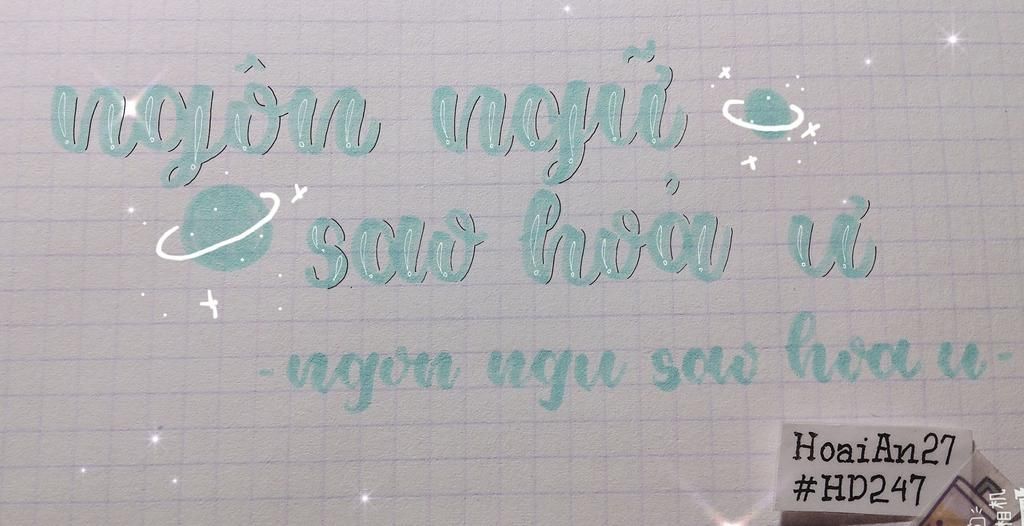 ngôn ngữ
sao hỏa ư
-ngon ngu sao hoa u-
HoaiAn27
#HD247
相机